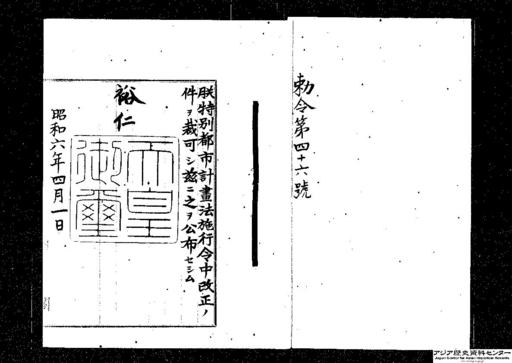 勅令第四十六號
朕特別都市計畫法施行令中改正ノ
件ヲ裁可シ茲ニ之ヲ公布セシム
裕仁
天皇
御璽
昭和六年四月一日
アジア歴史資料センター
Japan Center for Asian Historical Records